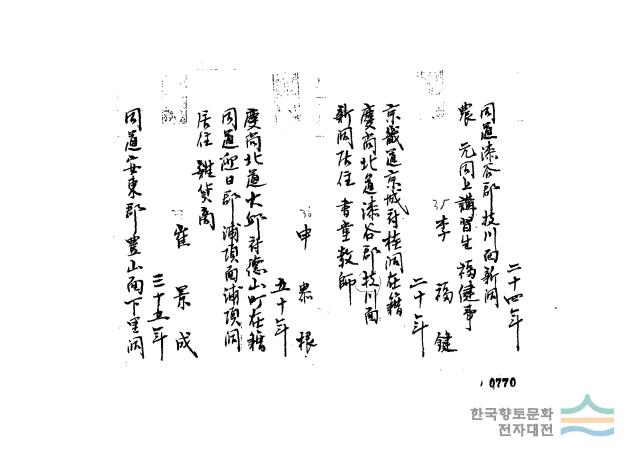 二十四年
同道漆谷郡枝川面新洞
農 元同上講習生 福健事
35 李 福 鍵
二十年
京畿道京城府桂洞在籍
慶尚北道漆谷郡枝川面
新洞居住 書童教師
36 申 根
五十年
慶尚北道大邱府德山町在籍
同道迎日郡浦項面浦項洞
居住 雜貨商
崔 景 成
三十五年
同道安東郡豊山面下里洞
0770
한국향토문화
전자대전